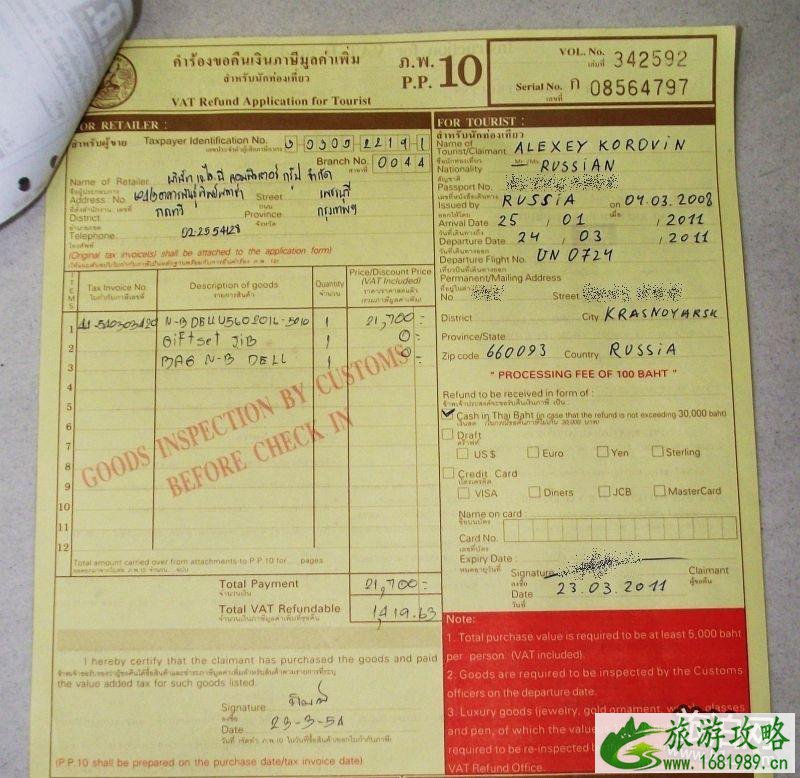 คำร้องขอคืนเงินภาษีมูลค่าเพิ่ม
สำหรับนักท่องเที่ยว
VAT Refund Application for Tourist
ภ.พ. 10
P.P.
VOL. No. 342592
เล่มที่
Serial No. ก 08564797
เลขที่
FOR RETAILER :
สำหรับผู้ขาย
Taxpayer Identification No.
เลขประจำตัวผู้เสียภาษีอากร
Branch No. 0044
สาขาที่
Name of Retailer
ชื่อผู้ประกอบการ
Address : No. Street เพชรบุรี
District Province กรุงเทพฯ
Telephone 02-2554128
โทรศัพท์
(Original tax invoice(s) shall be attached to the application form)
ITEMS
Tax Invoice No.
ใบกำกับภาษีเลขที่
Description of goods
รายการสินค้า
Quantity
จำนวน
Price/Discount Price
(VAT Included)
1 N-B DELL 1 21,700 =
2 Gift set JIB 1 0 =
3 BAG N-B DELL 1 0 =
4
5
6
7
8
9
10
11
12
GOODS INSPECTION BY CUSTOMS
BEFORE CHECK IN
Total amount carried over from attachments to P.P.10 for.... pages
Total Payment 21,700 =
จำนวนเงิน
Total VAT Refundable 1,419.63
จำนวนเงินภาษีมูลค่าเพิ่มที่ขอคืน
I hereby certify that the claimant has purchased the goods and paid
the value added tax for such goods listed.
Signature
ลงชื่อ
Date 23-3-54
วันที่
(P.P.10 shall be prepared on the purchase date/tax invoice date)
FOR TOURIST :
สำหรับนักท่องเที่ยว
Name of
Tourist/Claimant ALEXEY KOROVIN
ชื่อนักท่องเที่ยว
Nationality RUSSIAN
สัญชาติ
Passport No.
Issued by RUSSIA on 04.03.2008
ออกให้โดย เมื่อ
Arrival Date 25 , 01 , 2011
Departure Date 24 , 03 , 2011
Departure Flight No. UN 0724
Permanent/Mailing Address
No Street
District City KRASNOYARSK
Province/State
Zip code 660093 Country RUSSIA
" PROCESSING FEE OF 100 BAHT "
Refund to be received in form of :
Cash in Thai Baht (in case that the refund is not exceeding 30,000 baht)
Draft
ดราฟท์
US $ Euro Yen Sterling
Credit Card
บัตรเครดิต
VISA Diners JCB MasterCard
Name on card :
ชื่อบนบัตร
Card No.
เลขที่บัตร
Expiry Date :
หมดอายุวันที่
Signature Claimant
ลงชื่อ ผู้ขอคืน
Date 23.03.2011
วันที่
Note:
1. Total purchase value is required to be at least 5,000 baht
per person. (VAT included).
2. Goods are required to be inspected by the Customs
officers on the departure date.
3. Luxury goods (jewelry, gold ornament, glasses
and pen, of which the value
required to be re-inspected
VAT Refund Office.
旅游攻略
www.1681989.cn